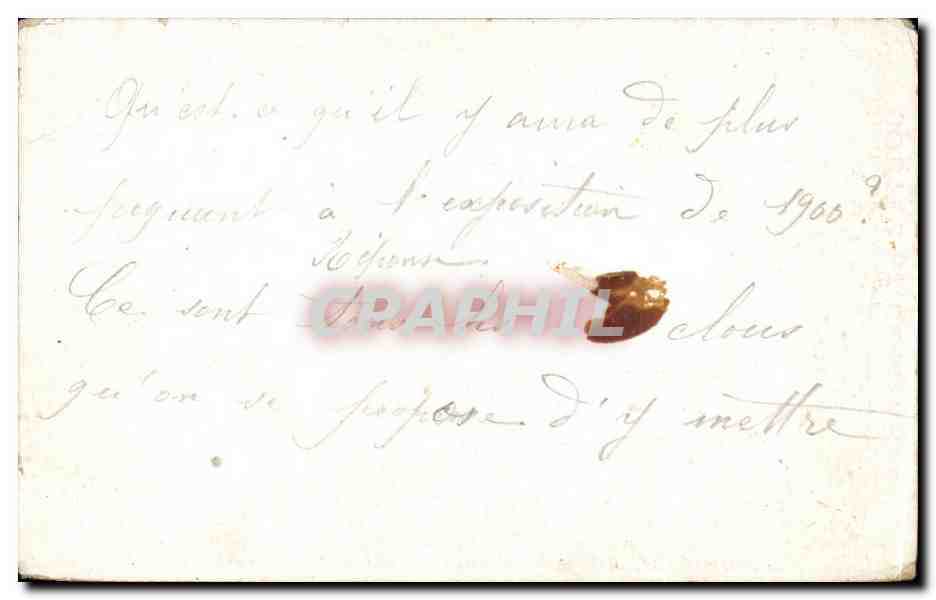 Qu'est-ce qu'il y aura de plus
piquant à l'exposition de 1900?
Réponse
Ce sont tous les clous
qu'on se propose d'y mettre
CPAPHIL